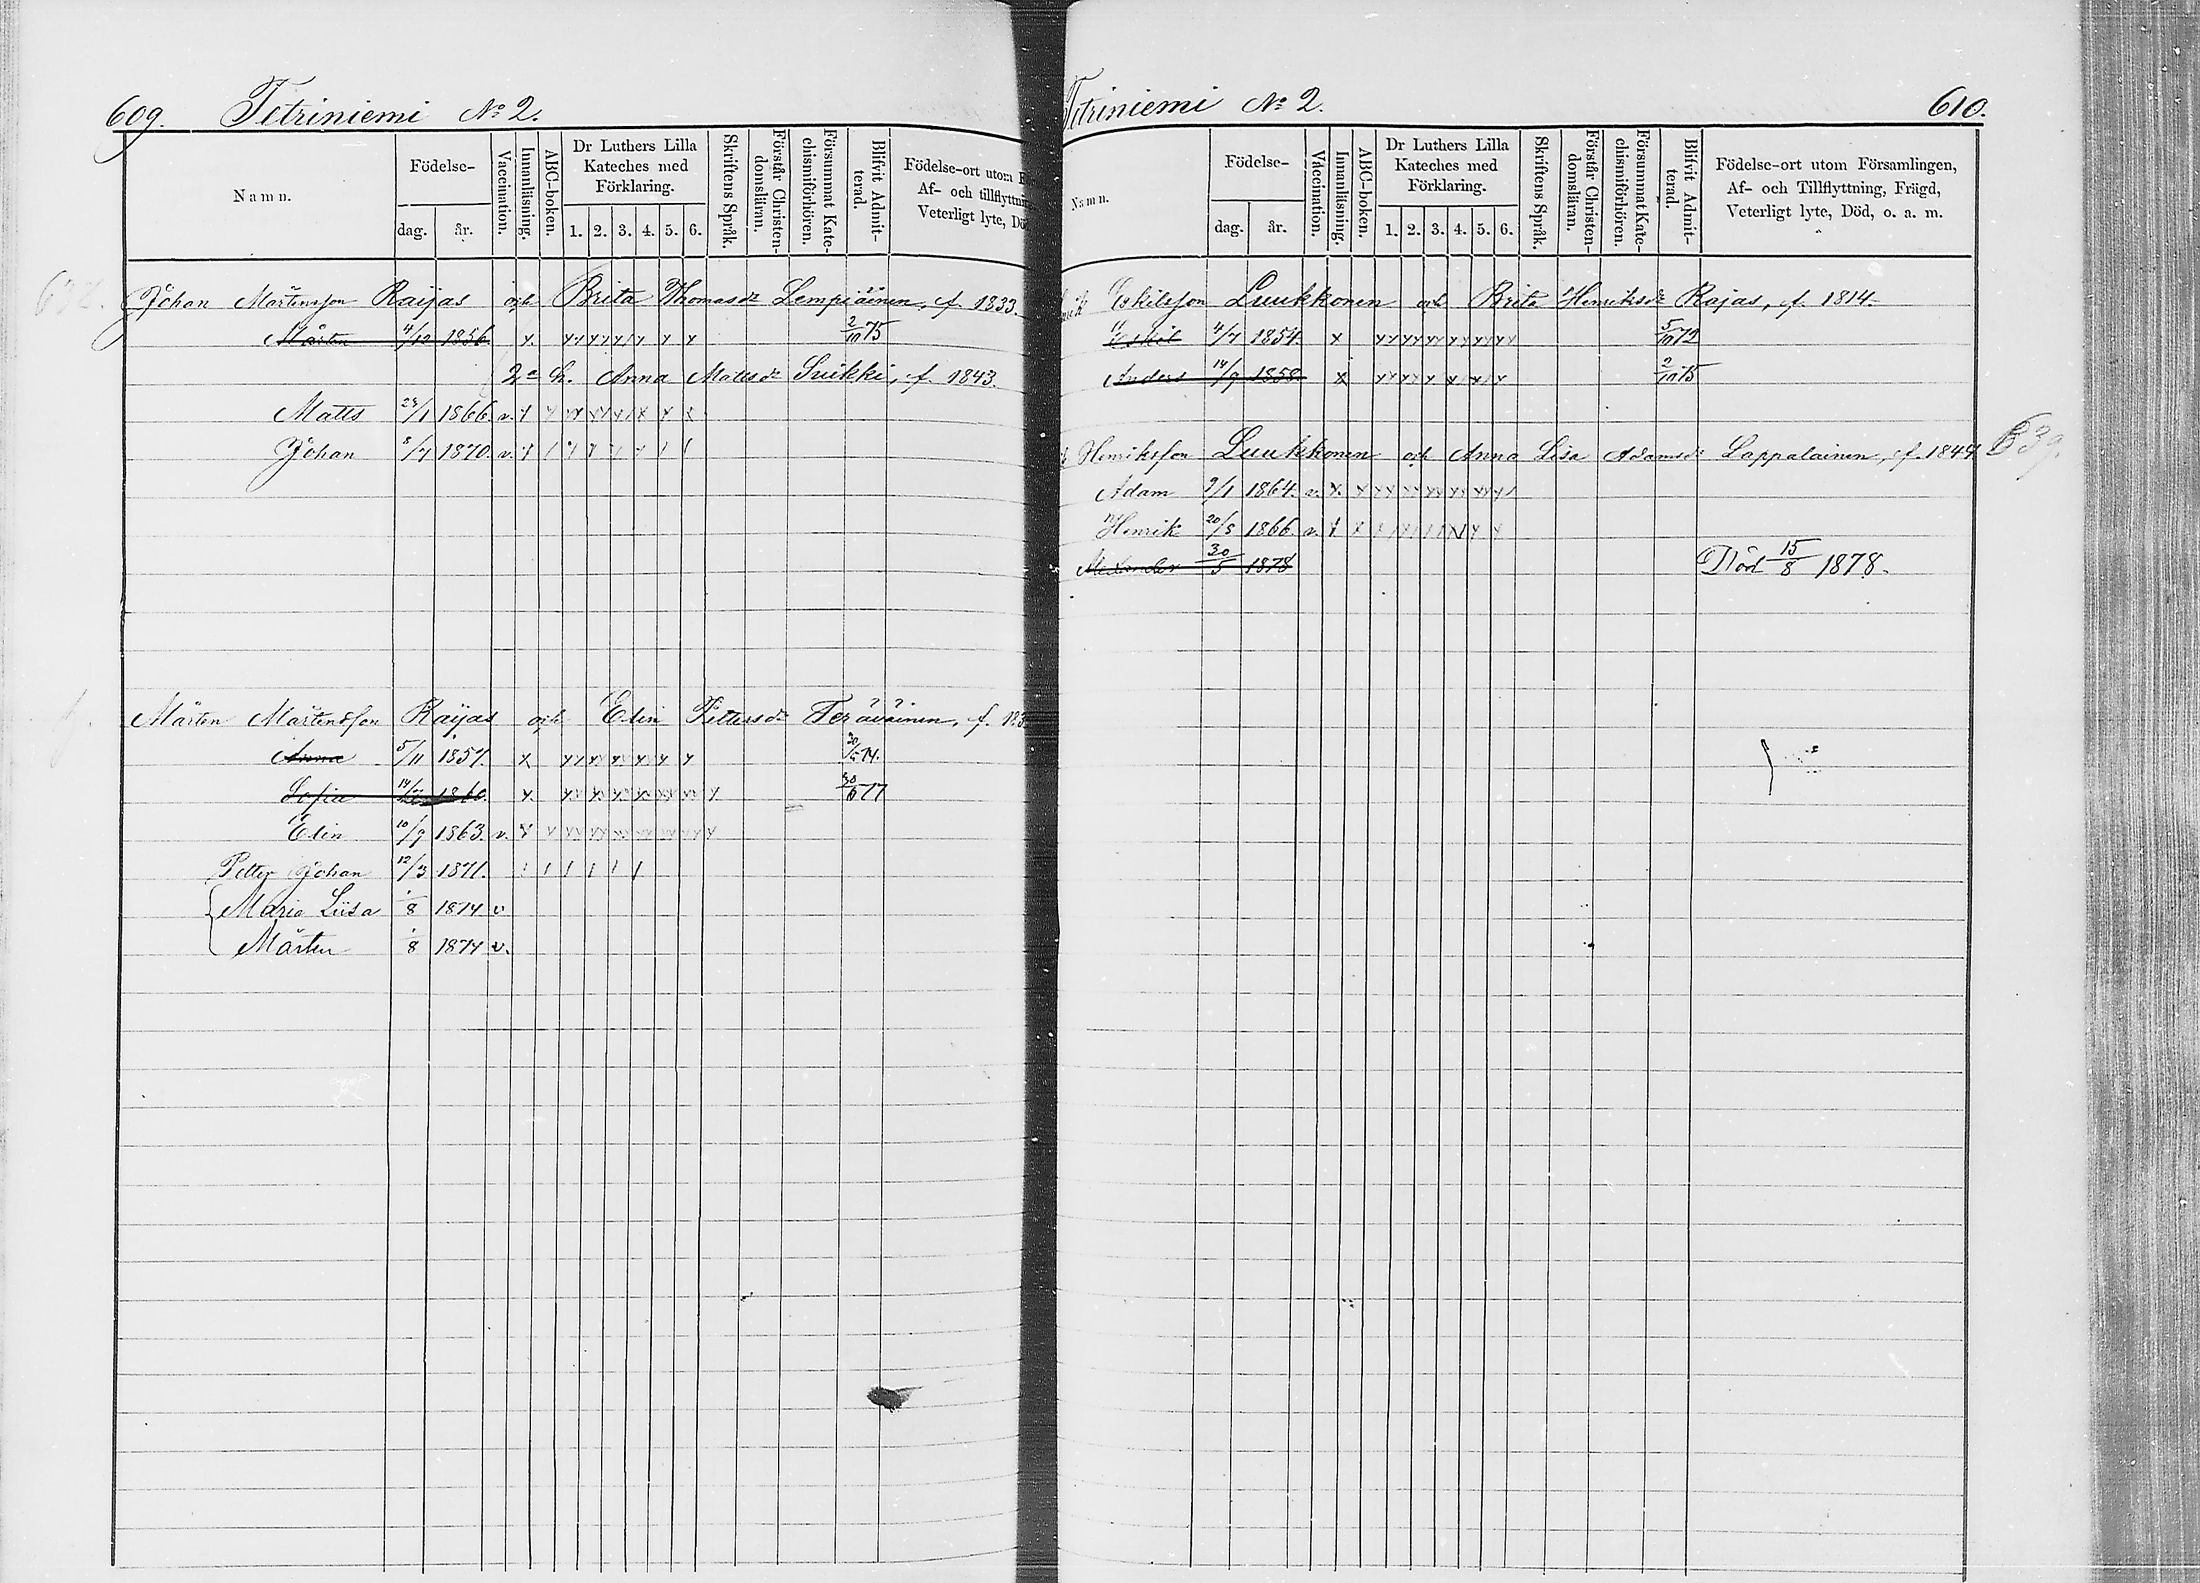 609. Tetriniemi No 2.
Namn.
Födelse-
dag. år.
Vaccination.
Innanläsning.
ABC-boken.
Dr Luthers Lilla
Kateches med
Förklaring.
1. 2. 3. 4. 5. 6.
Skriftens Språk.
Förstår Christen-
domsläran.
Försummat Kate-
chismiförhören.
Blifvit Admit-
terad.
Födelse-ort utom
Af- och tillflyttnin
Veterligt lyte, Dö
Johan Mårtensson Raijas och Brita Thomasdr Lempiäinen, f. 1833.
Mårten 4/12 1856. x 2/10 75
2a h. Anna Mattsdr Suikki, f. 1843.
Matts 23/1 1866. v.
Johan 8/7 1870. v.
Mårten Mårtensson Raijas och Elin Pettersdr Teräväinen, f. 183
Anna 5/11 1857. x 74.
Sofia 1860. x 30/6 77
Elin 10/9 1863. v.
Petter Johan 12/3 1871.
Maria Liisa 8 1874 v
Mårten 8 1874 v.
Tetriniemi No 2. 610.
Namn.
Födelse-
dag. år.
Vaccination.
Innanläsning.
ABC-boken.
Dr Luthers Lilla
Kateches med
Förklaring.
1. 2. 3. 4. 5. 6.
Skriftens Språk.
Förstår Christen-
domsläran.
Försummat Kate-
chismiförhören.
Blifvit Admit-
terad.
Födelse-ort utom Församlingen,
Af- och Tillflyttning, Frägd,
Veterligt lyte, Död, o. a. m.
Eskilsson Luukkonen och Brita Henriksdr Rajas, f. 1814.
Eskil 4/7 1854. x 5/10 72
Anders 14/9 1858. x 2/10 75
Henriksson Luukkonen och Anna Lisa Adamsdr Lappalainen, f. 1844 639.
Adam 9/1 1864. v. x
Henrik 20/5 1866. v.
Alexander 30/5 1878 Död 15/8 1878.